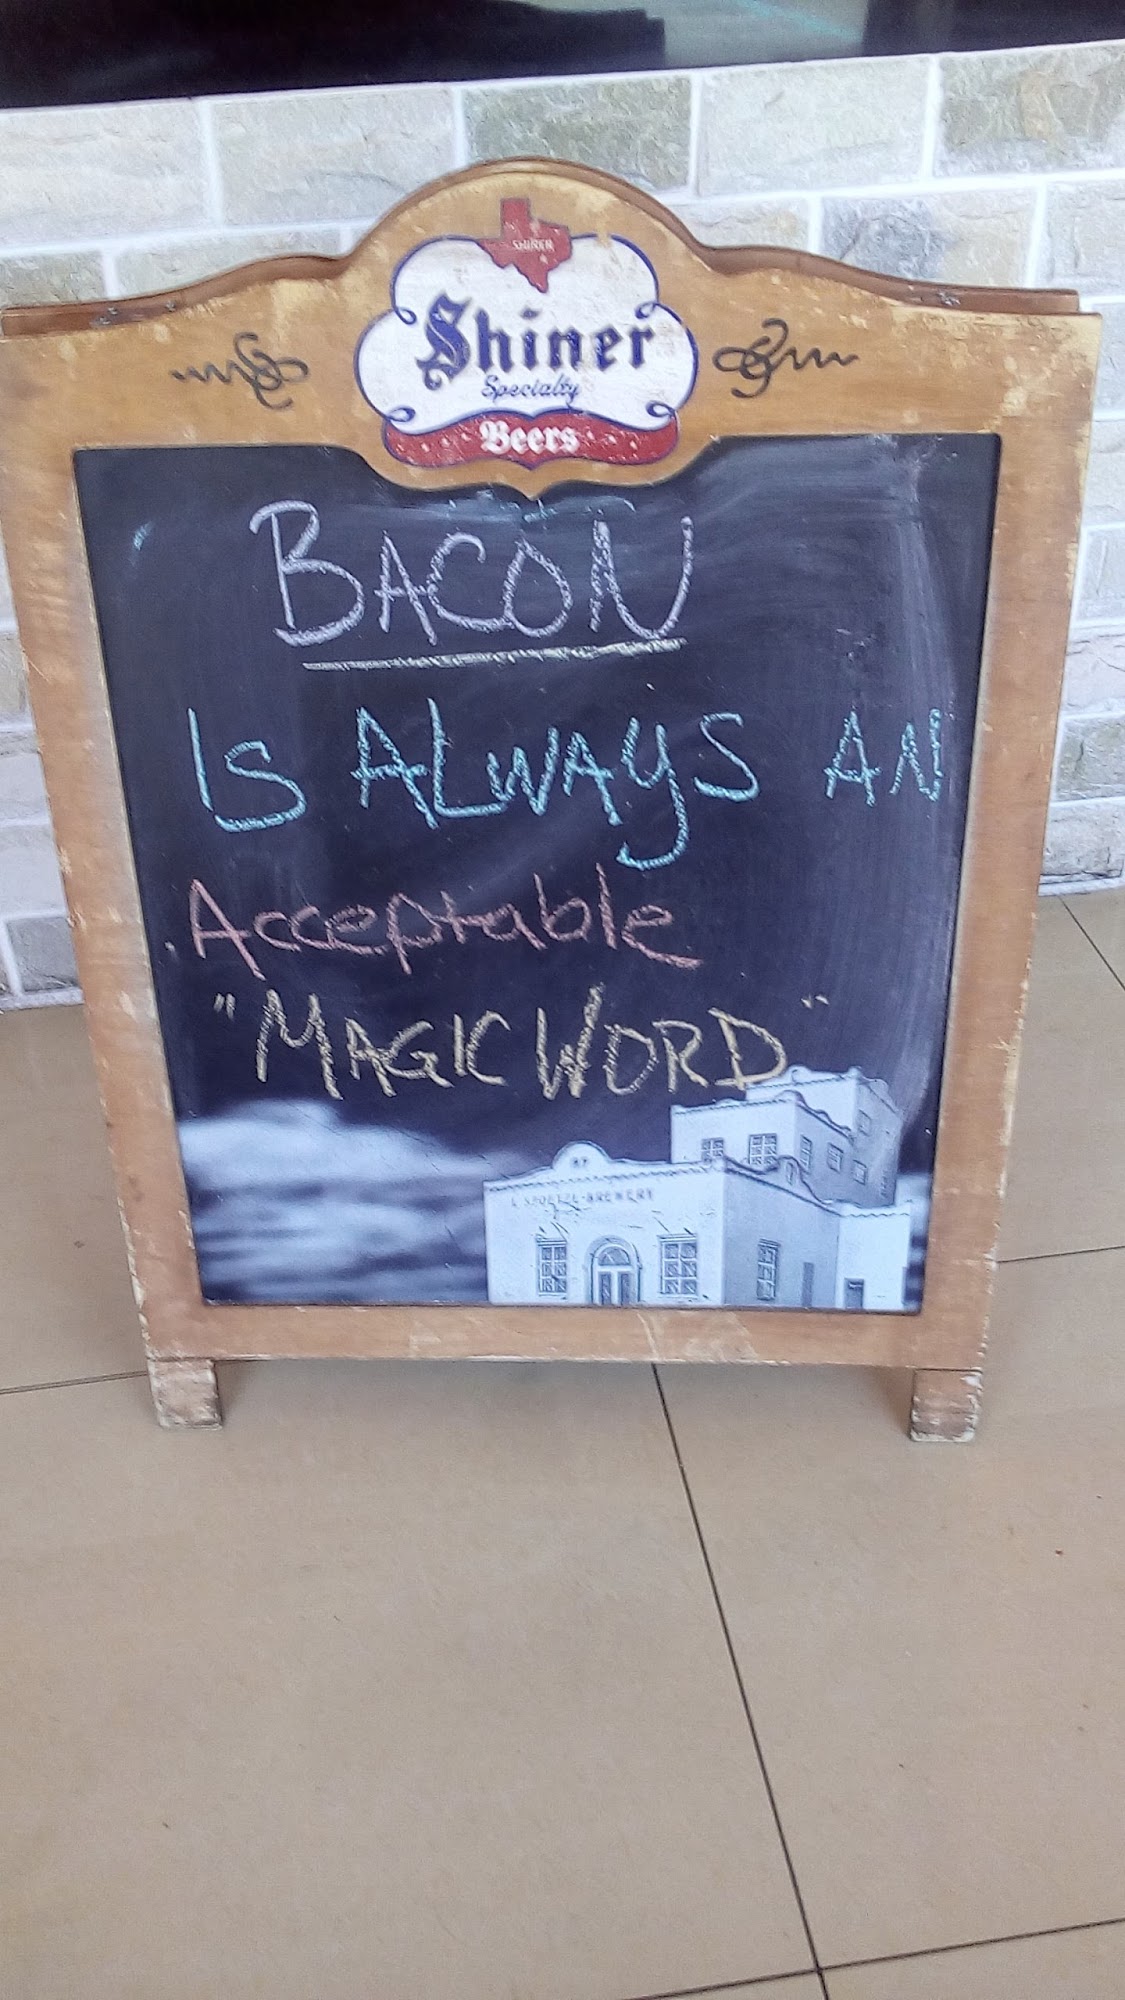 SHINER
Shiner
Specialty
Beers
BACON
IS ALWAYS AN
Acceptable
"MAGIC WORD"
SPOETZL BREWERY